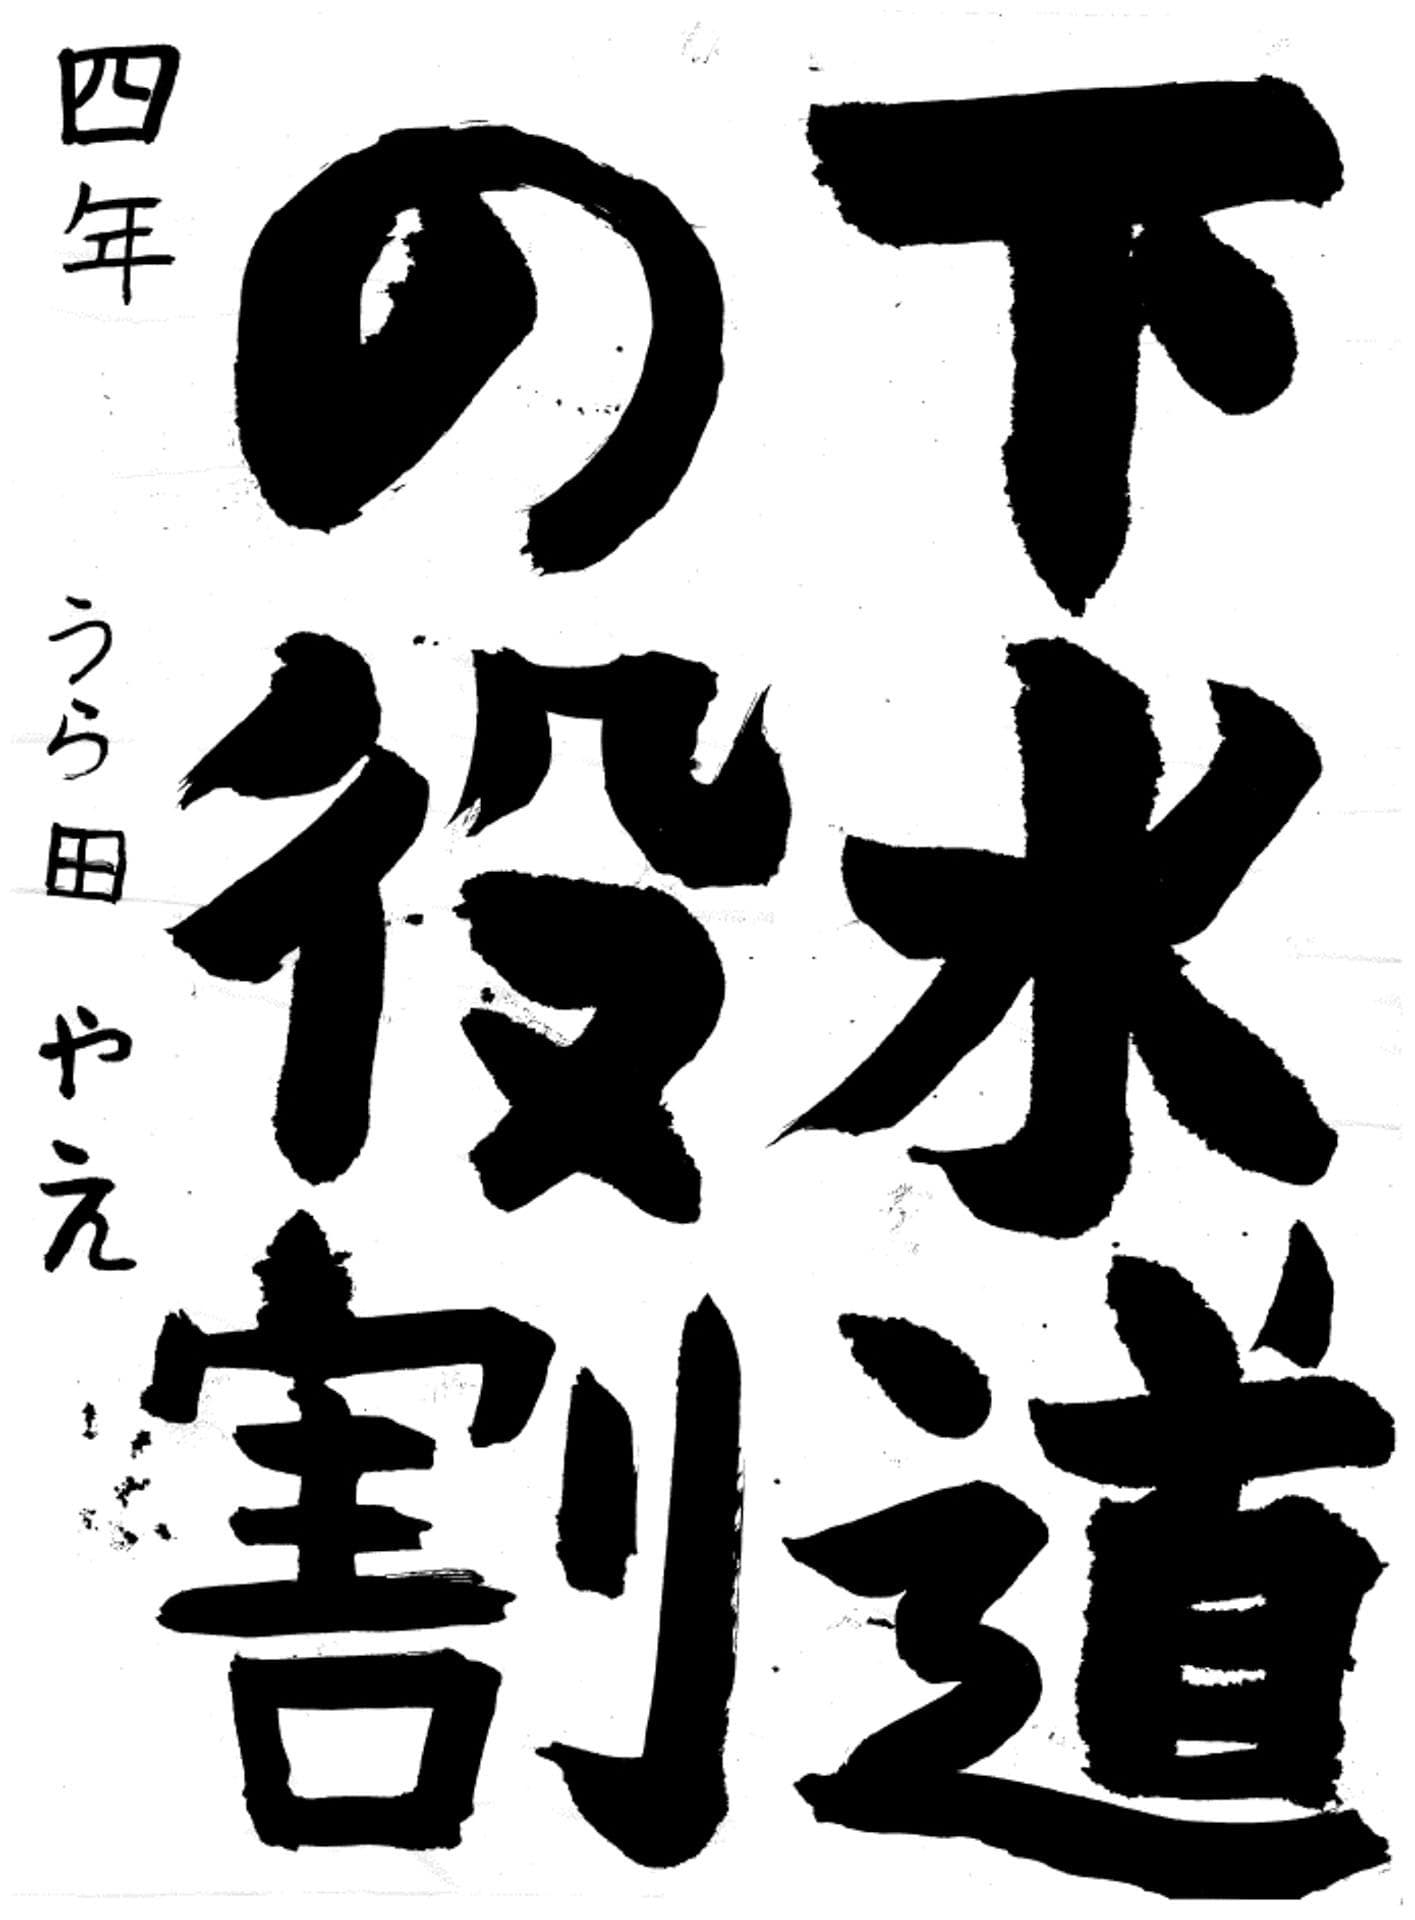 下水道
の役割
四年 うら田 やえ